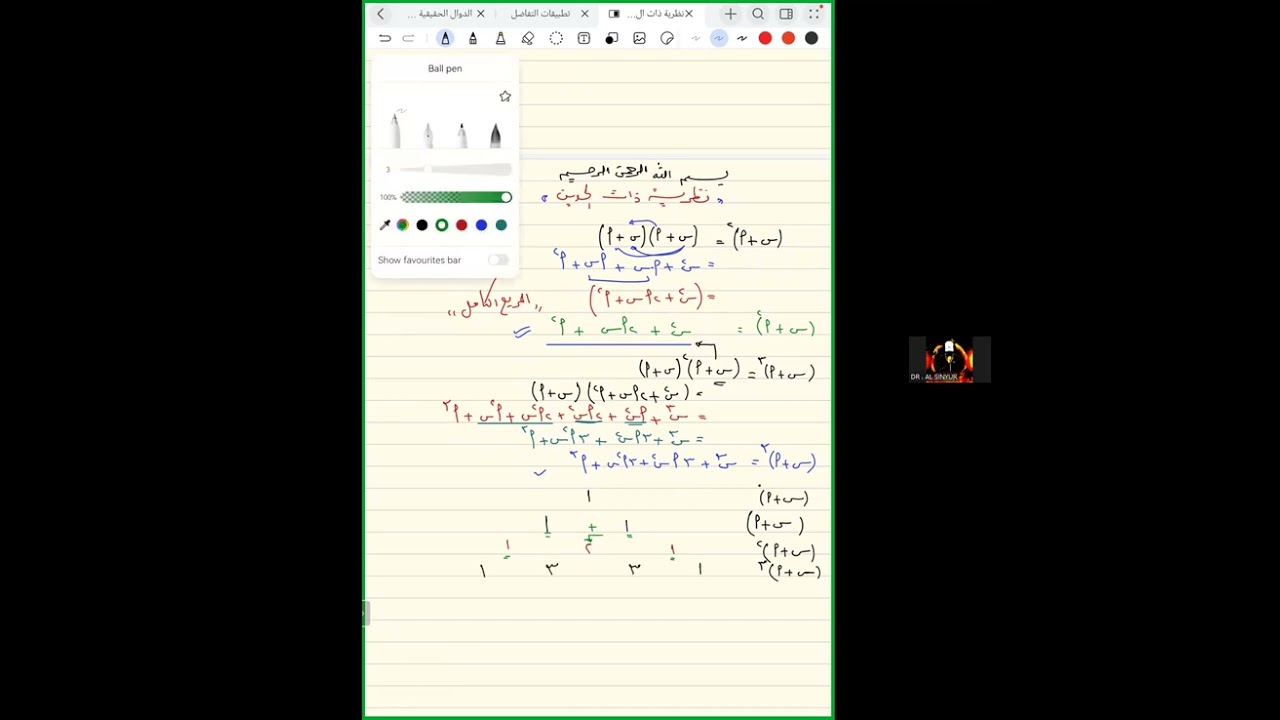 الدوال الحقيقية ...
تطبيقات التفاضل
نظرية ذات ال...
Ball pen
3
100%
Show favourites bar
بسم الله الرحمن الرحيم
" نظرية ذات الحدين "
(س+م)² = (س+م)(م+س)
= س² + مس + مس + م²
= (س² + ٢مس + م²) "المربع الكامل"
(س+م)² = س² + ٢مس + م²
(س+م)³ = (س+م)²(س+م)
= (س² + ٢مس + م²)(س+م)
= س³ + مس² + ٢مس² + ٢م²س + م²س + م³
= س³ + ٣مس² + ٣م²س + م³
(س+م)³ = س³ + ٣مس² + ٣م²س + م³
(س+م)٠ ١
(س+م) ١ + ١
(س+م)² ١ ٢ ١
(س+م)³ ١ ٣ ٣ ١
DR . AL SINYUR